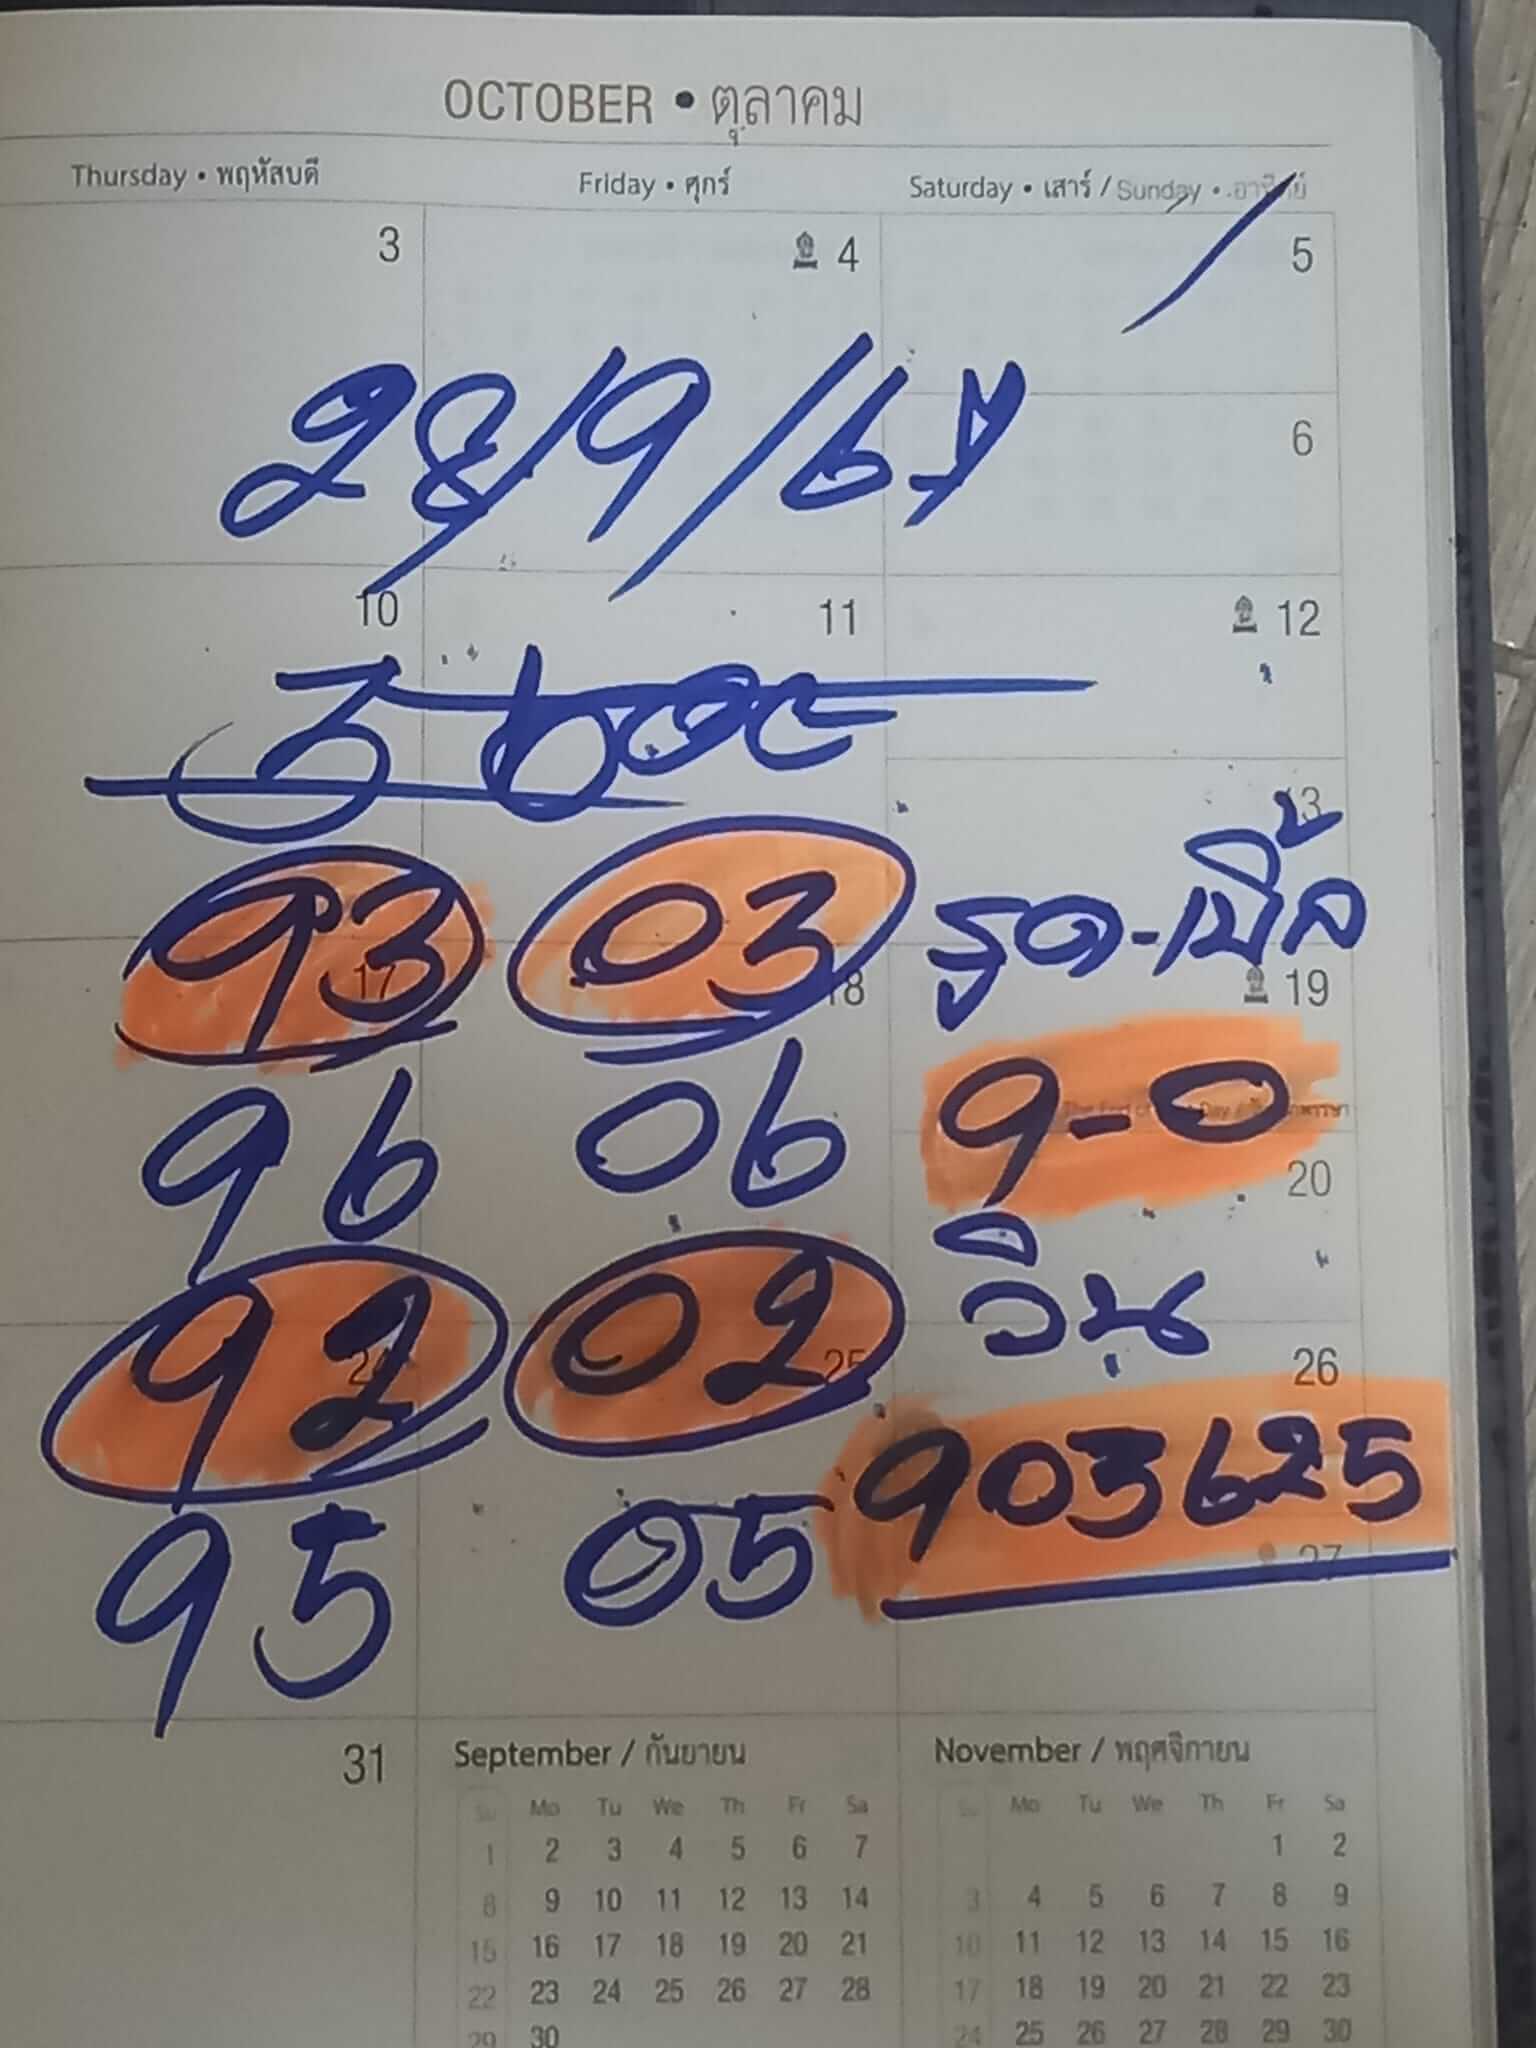 OCTOBER • ตุลาคม
Thursday • พฤหัสบดี Friday • ศุกร์ Saturday • เสาร์ / Sunday • อาทิตย์
3 4 5
28/9/67
6
10 11 12
13
93 03 รูด-เบิ้ล
17 18 19
96 06 9-0
20
วิน
92 02
24 25 26
903625
95 05
27
31
September / กันยายน
Su Mo Tu We Th Fr Sa
1 2 3 4 5 6 7
8 9 10 11 12 13 14
15 16 17 18 19 20 21
22 23 24 25 26 27 28
29 30
November / พฤศจิกายน
Su Mo Tu We Th Fr Sa
1 2
3 4 5 6 7 8 9
10 11 12 13 14 15 16
17 18 19 20 21 22 23
24 25 26 27 28 29 30